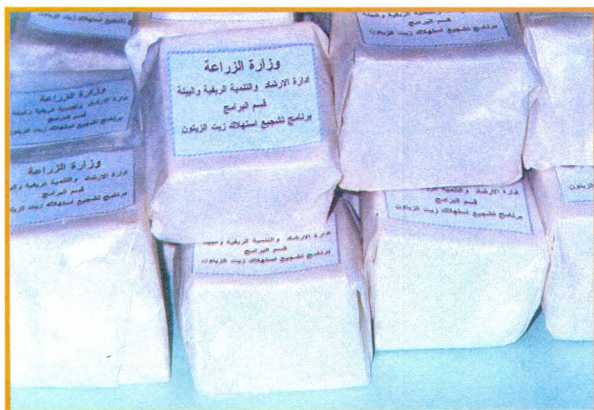 وزارة الزراعة
ادارة الارشاد والتنمية الريفية والبيئة
قسم البرامج
برنامج تشجيع استهلاك زيت الزيتون
وزارة الزراعة
ادارة الارشاد والتنمية الريفية
قسم البرامج
برنامج تشجيع استهلاك زيت
قسم البرامج
برنامج تشجيع استهلاك زيت الزيتون
وزارة الزراعة
ادارة الارشاد والتنمية الريفية
قسم البرامج
برنامج تشجيع استهلاك زيت
ادارة الارشاد والتنمية الريفية والبيئة
قسم البرامج
برنامج تشجيع استهلاك زيت الزيتون
ادارة الارشاد والتنمية الريفية
قسم البرامج
برنامج تشجيع استهلاك زيت الزيتون
الزيتون